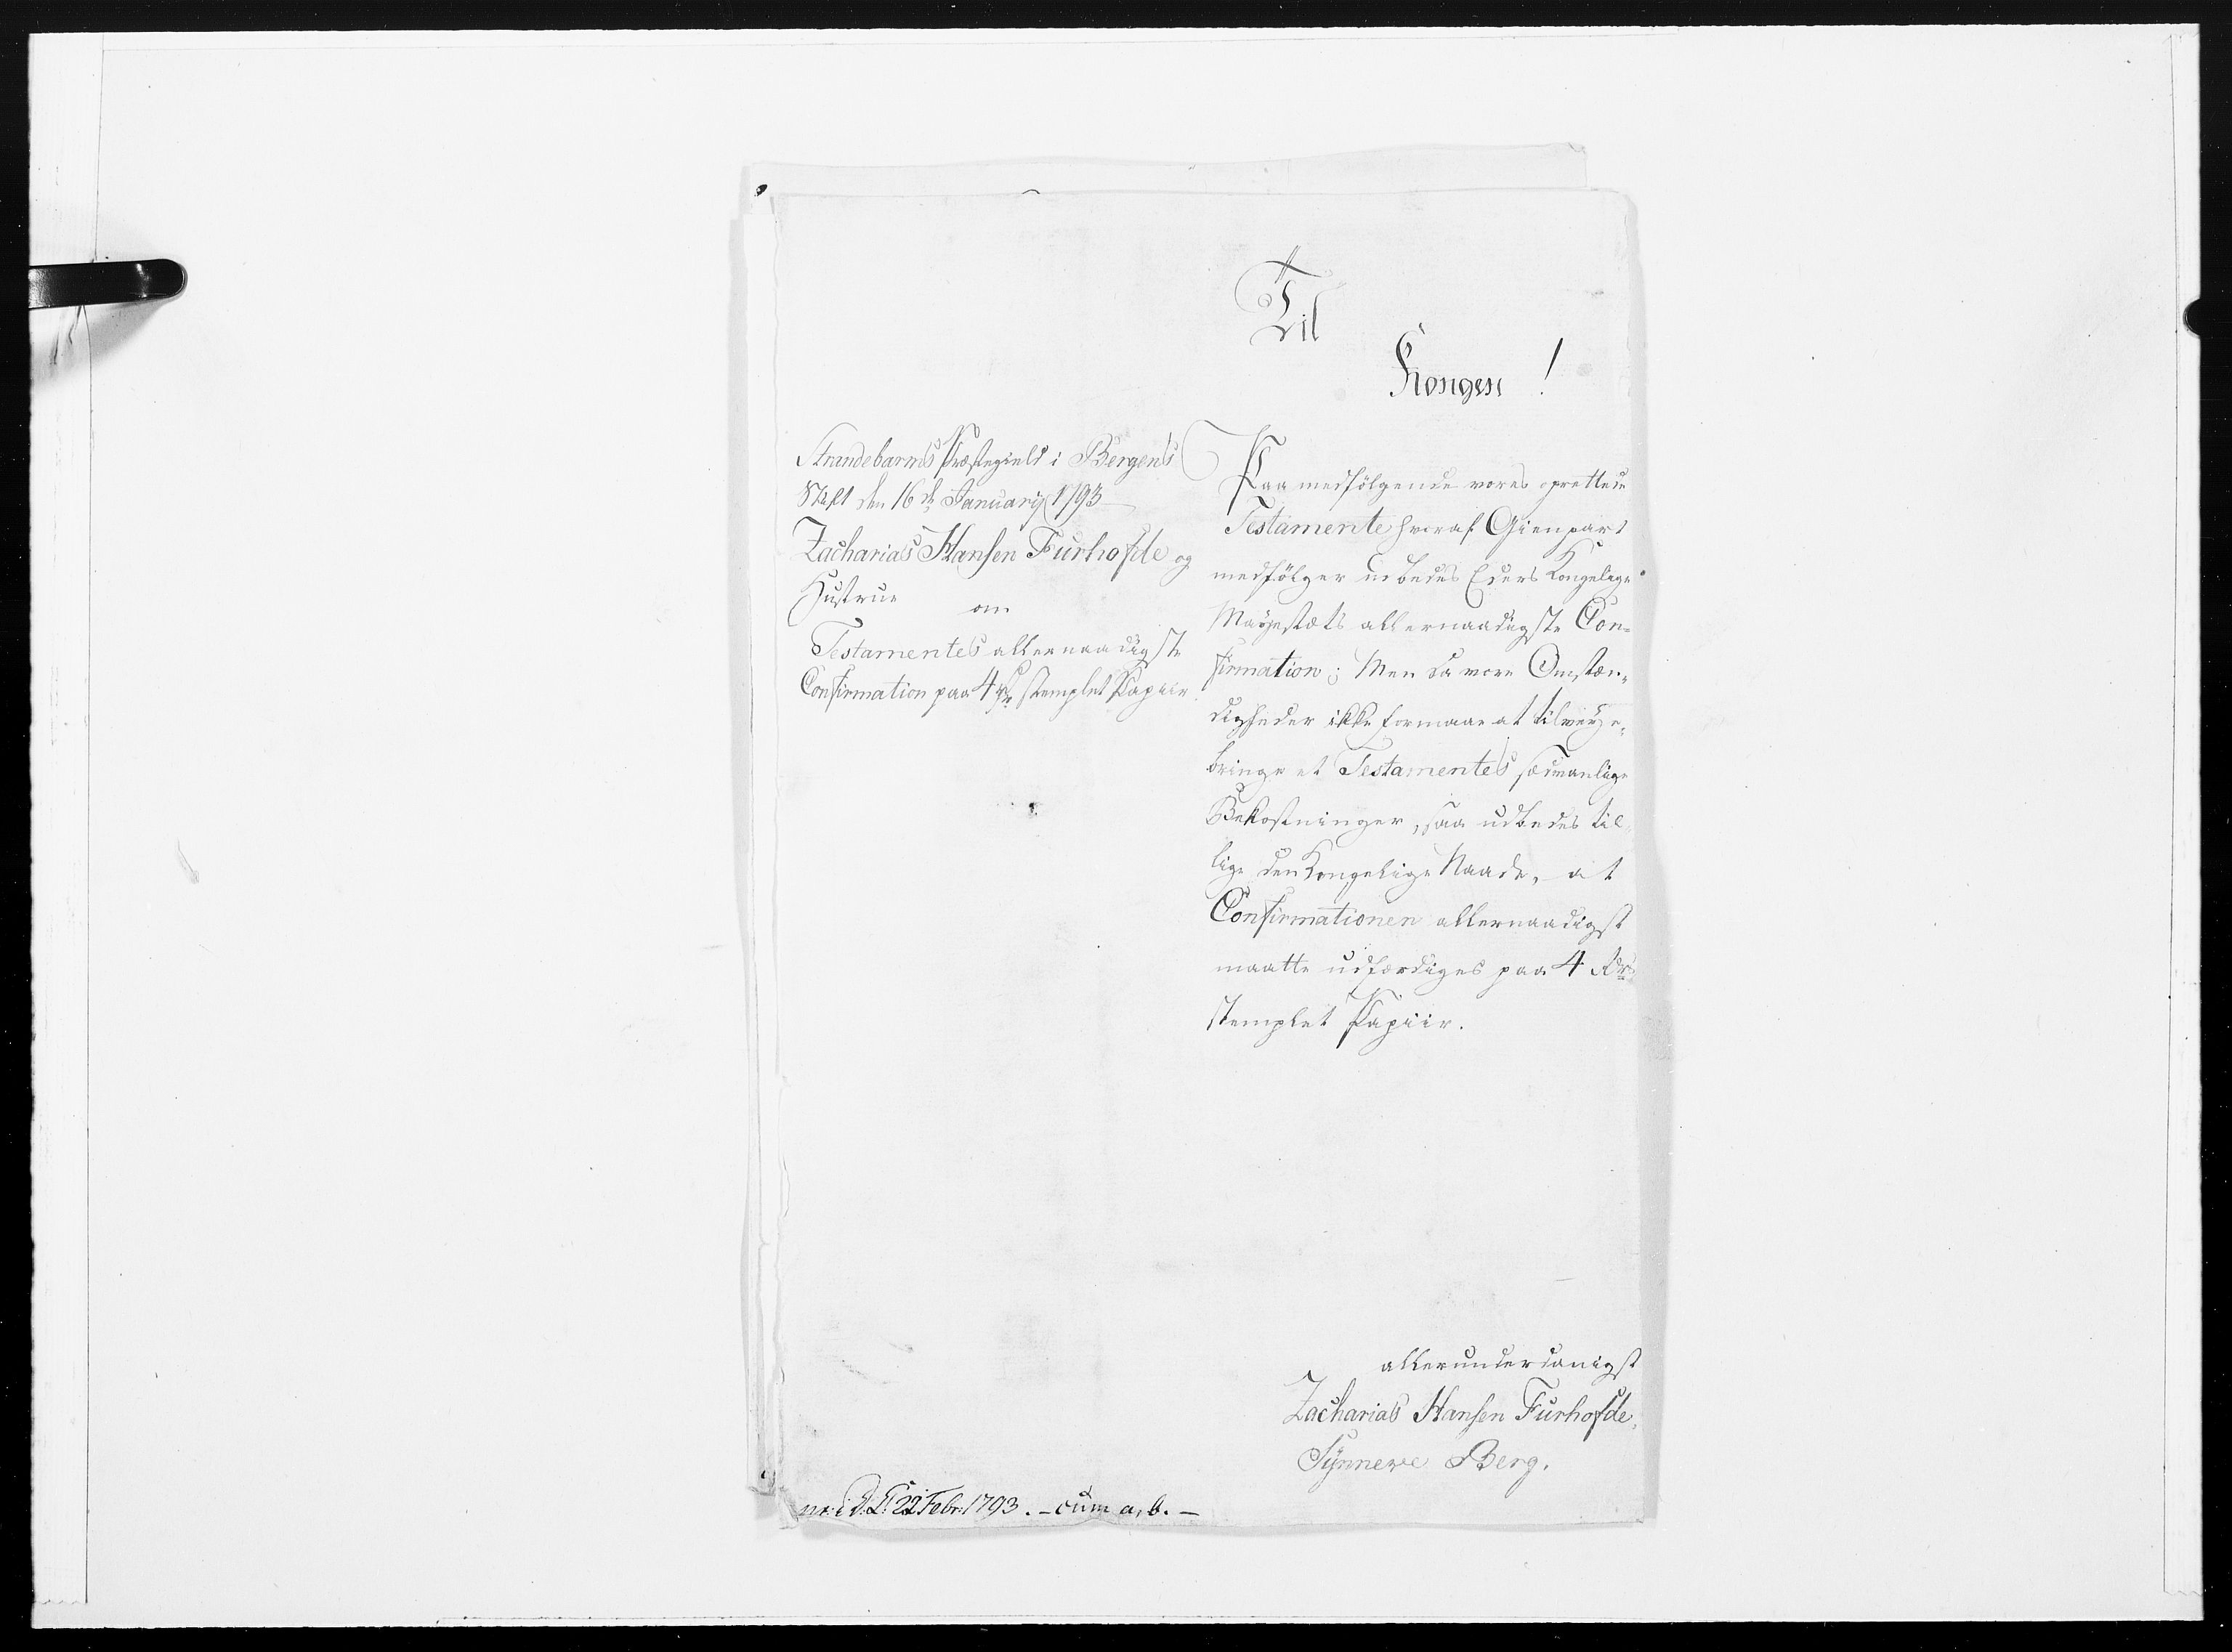 Til
Kongen!
Strandebarms Præstegield i Bergens
Stift den 16de Januarij 1793
Zacharias Hansen Furhofde og
Hustrue om
Testamentes allernaadigste
Confirmation paa 4 rdr stemplet Papiir
Paa medfølgende vores oprettede
Testamente hvoraf Gienpart
medfölger udbedes Eders Kongelige
Mayestæts allernaadigste Con-
firmation; Men da vore Omstæn-
digheder ikke formaae at tilveye-
bringe et Testamentes sædvanlige
Bekostninger, saa udbedes til-
lige den Kongelige Naade, at
Confirmationen allernaadigst
maatte udfærdiges paa 4 Rdrs
stemplet Papiir.
allerunderdanigst
Zacharias Hansen Furhofde.
Synneve Berg.
22 Febr: 1793. - cum a, b. -